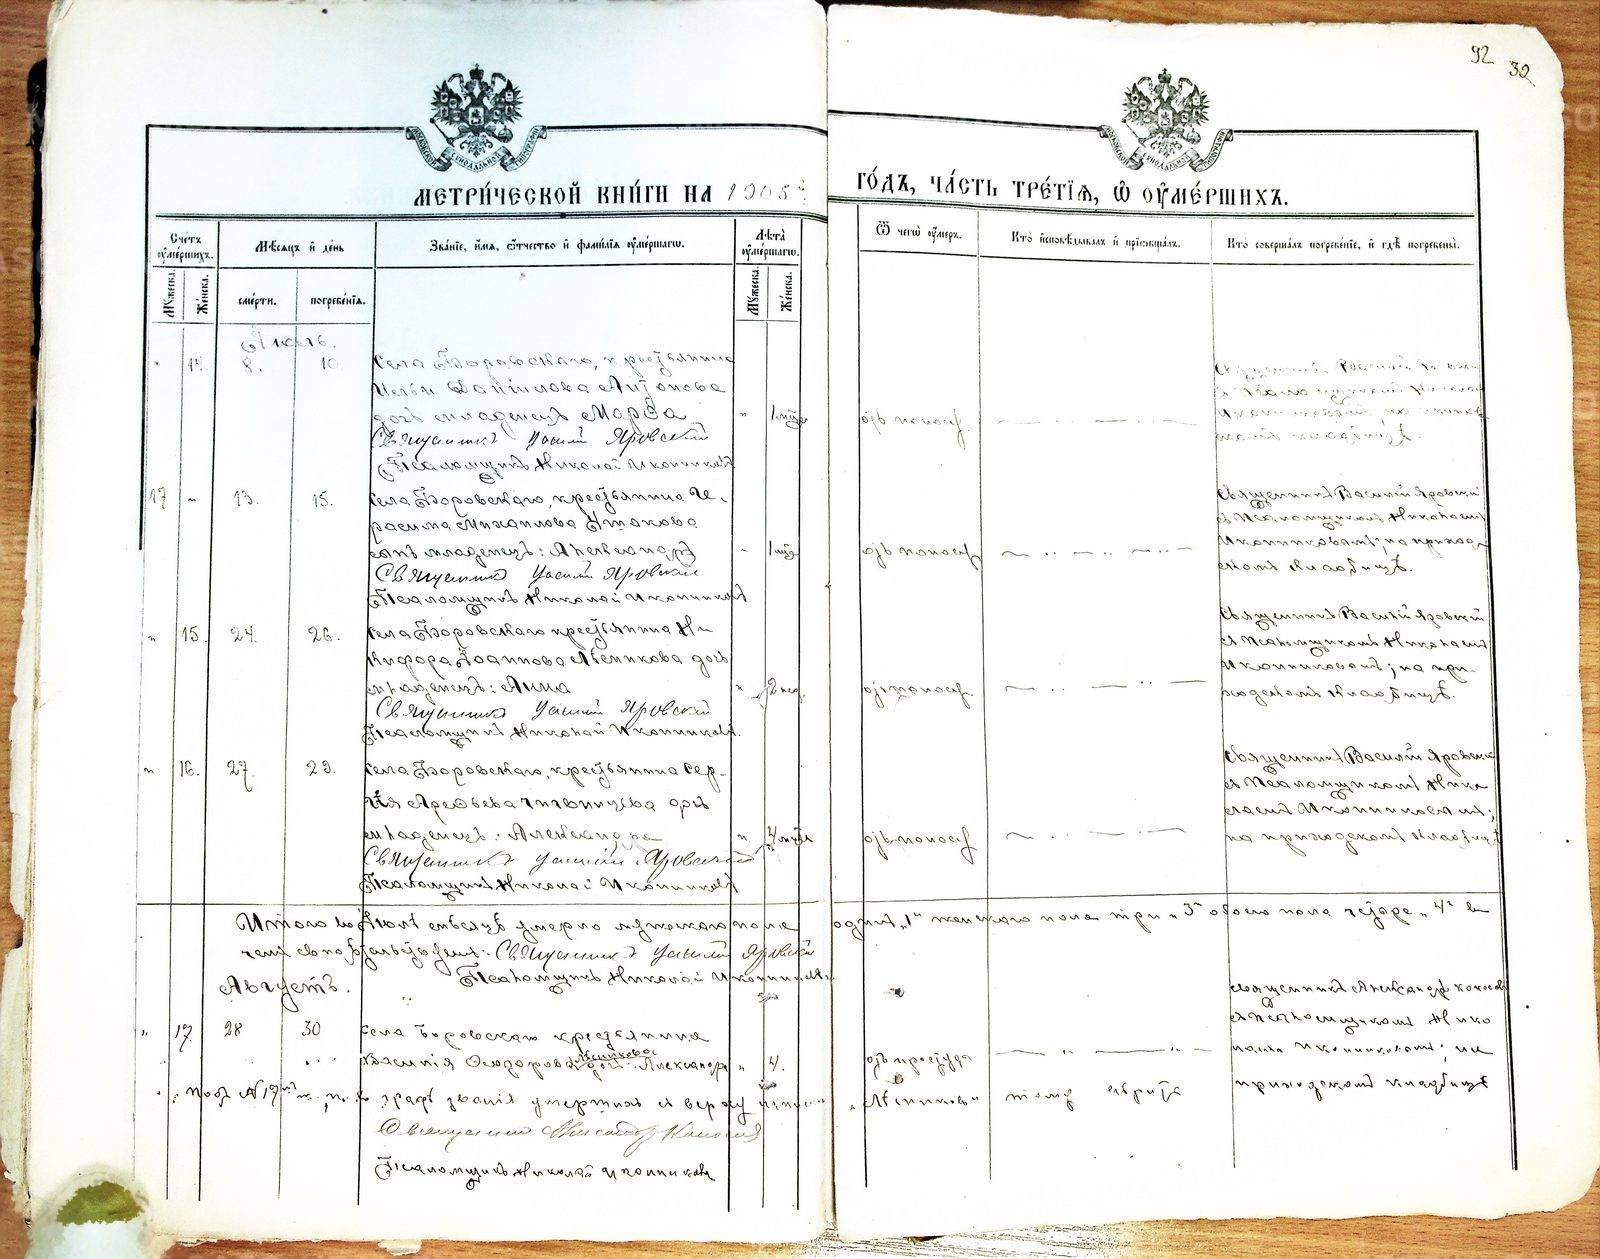 92 32
МОСКОВСКОЙ СѴНОДАЛЬНОЙ ТИПОГРАФІИ
МОСКОВСКОЙ СѴНОДАЛЬНОЙ ТИПОГРАФІИ
МЕТРИ́ЧЕСКОЙ КНИ́ГИ НА 1905й
ГО́ДЪ, ЧА́СТЬ ТРЕ́ТІѦ, Ѽ ОУ҆МЕ́РШИХЪ.
Сче́тъ оу҆ме́ршихъ.
Мꙋ́жеска.
Же́нска.
Мѣ́сяцъ и҆ де́нь
сме́рти.
погребе́нїѧ.
Зва́нїе, и҆́мѧ, ѻ҆́тчество и҆ фами́лїѧ оу҆ме́ршагѡ.
Лѣ́та оу҆ме́ршагѡ.
Мꙋ́жеска.
Же́нска.
Ѿ чегѡ̀ оу҆́меръ.
Кто̀ и҆сповѣ́дывалъ и҆ прїѡбща́лъ.
Кто̀ соверша́лъ погребе́нїе, и҆ гдѣ̀ погребены̀.
Іюль.
" 14. 8. 10.
Села Боровскаго, крестьянина
Ильи Даніилова Антонова
дочь младенецъ Марѳа
Священникъ Василій Яровскій
Псаломщикъ Николай Иконниковъ
" отъ поноса.
Священникъ Василій
17 " 13. 15.
Села Боровскаго, крестьянина Ге-
расима Михаилова Ушакова
сынъ младенецъ: Александръ
Священникъ Василій Яровскій
Псаломщикъ Николай Иконниковъ
отъ поноса
Священникъ Василій Яровскій
съ Псаломщикомъ Николаемъ
Иконниковымъ; на приход-
скомъ кладбищѣ.
" 15. 24. 26.
Села Боровскаго крестьянина Ни-
кифора Іоаннова Мѣсникова дочь
младенецъ: Анна
Священникъ Василій Яровскій
Псаломщикъ Николай Иконниковъ.
" 2 нед. отъ поноса.
Священникъ Василій Яровскій
съ Псаломщикомъ Николаемъ
Иконниковымъ; на при-
ходскомъ кладбищѣ.
" 16. 27. 29.
Села Боровскаго, крестьянина Сер-
гія Арефьева дочь
младенецъ: Александра
Священникъ Василій Яровскій
Псаломщикъ Николай Иконниковъ
" отъ поноса
Священникъ Василій Яровскій
съ Псаломщикомъ Нико
лаемъ Иконниковымъ;
на приходскомъ кладбищѣ
Итого въ Іюлѣ мѣсяцѣ умерло мужскаго пола одинъ "1" женскаго пола три "3" обоего пола четыре "4" въ
чемъ свидѣтельствуемъ: Священникъ Василій Яровскій
Псаломщикъ Николай Иконниковъ
Августъ.
" 17. 28 30
Села Боровскаго крестьянина
Ѳеодорова Мѣсникова дочь Александра " 4.
отъ простуда
Священникъ Александръ
съ Псаломщикомъ Нико
лаемъ Иконниковымъ; на
приходскомъ кладбищѣ
Священникъ Александръ
Псаломщикъ Николай Иконниковъ